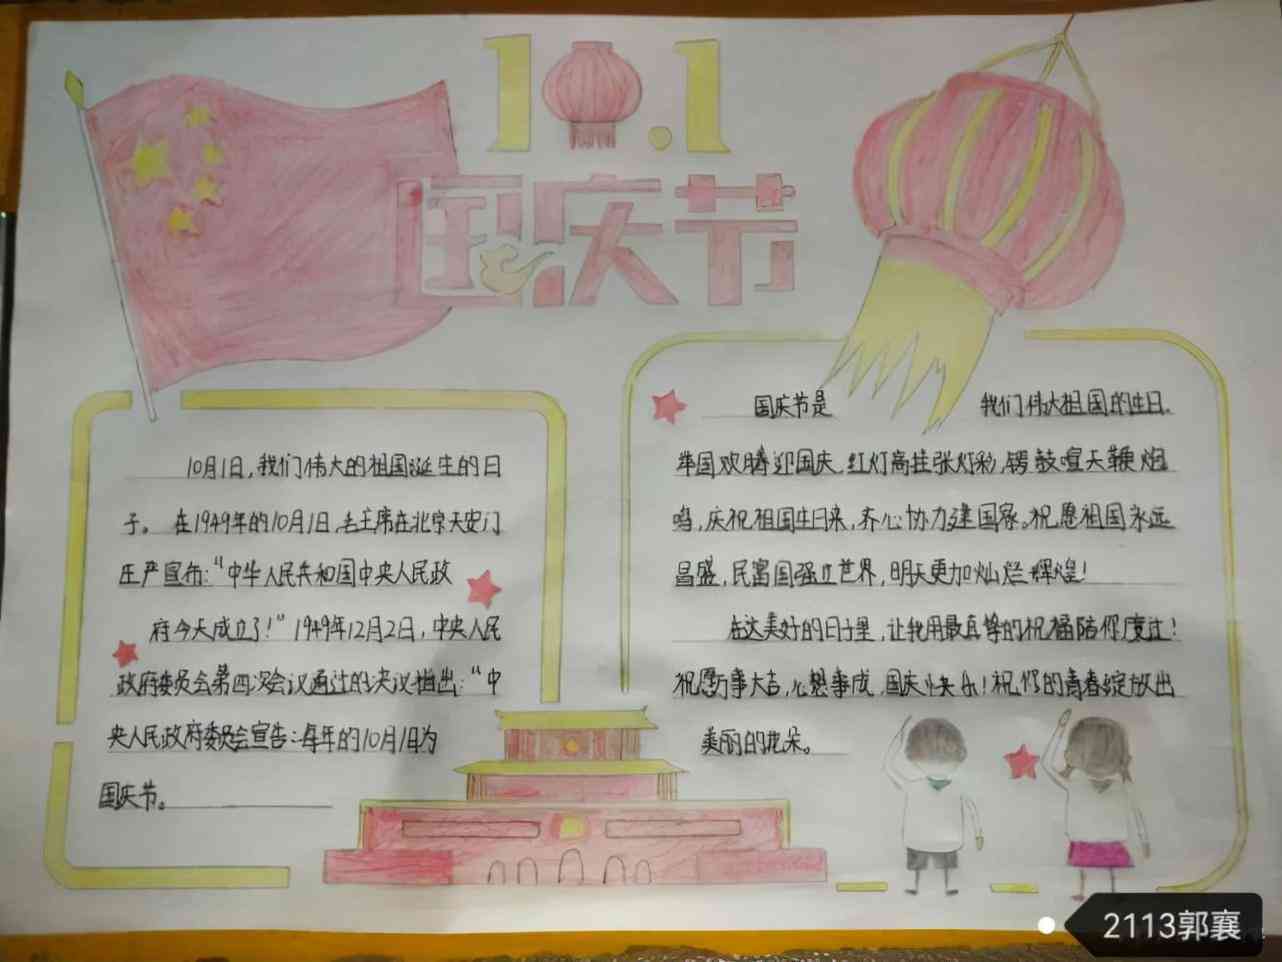 10.1
国庆节
10月1日，我们伟大的祖国诞生的日
子。在1949年的10月1日，毛主席在北京天安门
庄严宣布：“中华人民共和国中央人民政
府今天成立了！”1949年12月2日，中央人民
政府委员会第四次会议通过的决议指出：“中
央人民政府委员会宣告：每年的10月1日为
国庆节。
国庆节是 我们伟大祖国的生日.
举国欢腾迎国庆，红灯高挂张灯彩，锣鼓喧天鞭炮
鸣，庆祝祖国生日来，齐心协力建国家。祝愿祖国永远
昌盛，民富国强立世界，明天更加灿烂辉煌！
在这美好的日子里，让我用最真挚的祝福陪你度过！
祝愿万事大吉，心想事成，国庆快乐！祝你的青春绽放出
美丽的花朵。
2113郭襄